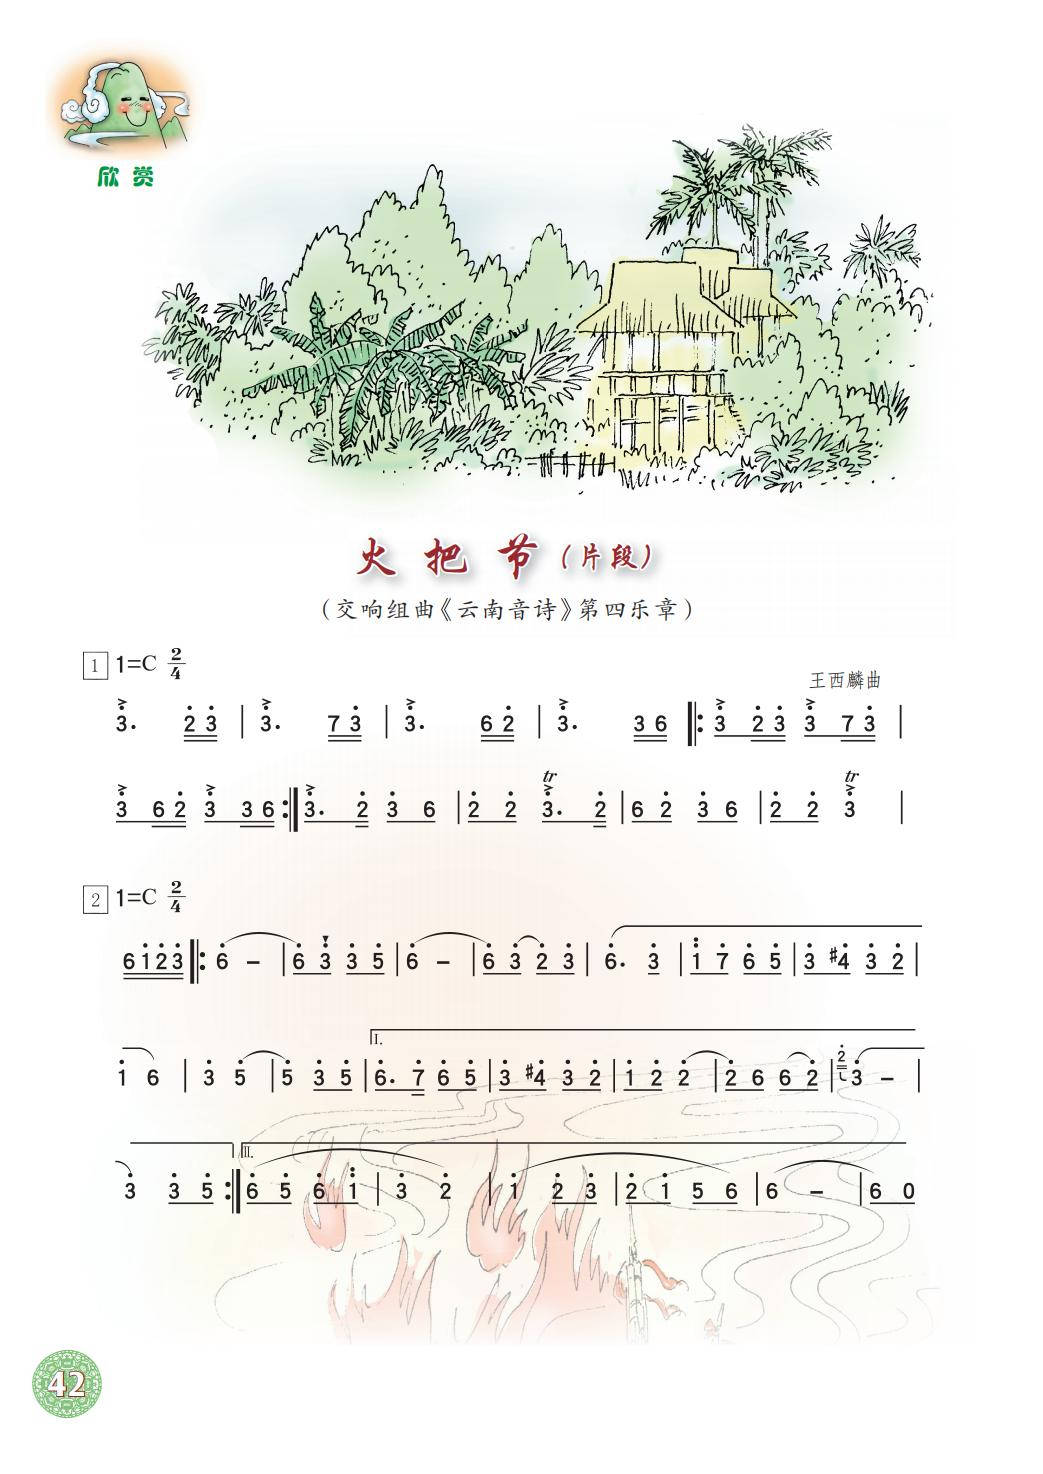 欣 赏
火 把 节（片段）
（交响组曲《云南音诗》第四乐章）
1 1=C 2/4
王西麟曲
3̇. 2̇ 3̇ | 3̇. 7 3̇ | 3̇. 6 2̇ | 3̇. 3 6 ‖: 3̇ 2̇ 3̇ 3̇ 7 3̇ |
3̇ 6 2̇ 3̇ 3 6 :‖ 3̇. 2̇ 3̇ 6 | 2̇ 2̇ tr 3̇. 2̇ | 6 2̇ 3̇ 6 | 2̇ 2̇ tr 3̇ |
2 1=C 2/4
6 1̇ 2̇ 3̇ ‖: 6̇ – | 6̇ 3̇ 3̇ 5̇ | 6̇ – | 6̇ 3̇ 2̇ 3̇ | 6̇. 3̇ | 1̈ 7̇ 6̇ 5̇ | 3̇ #4̇ 3̇ 2̇ |
1̇ 6 | 3̇ 5̇ | 5̇ 3̇ 5̇ | I. 6̇. 7̇ 6̇ 5̇ | 3̇ #4̇ 3̇ 2̇ | 1̇ 2̇ 2̇ | 2̇ 6 6 2̇ | 2̇ 3̇ – |
3̇ 3̇ 5̇ :‖ II. 6̇ 5̇ 6̇ 1̈ | 3̇ 2̇ | 1̇ 2̇ 3̇ | 2̇ 1̇ 5 6 | 6 – | 6 0
42